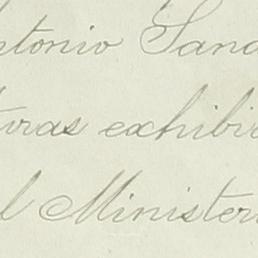 ntonio Sand
turas exhibid
l Minister